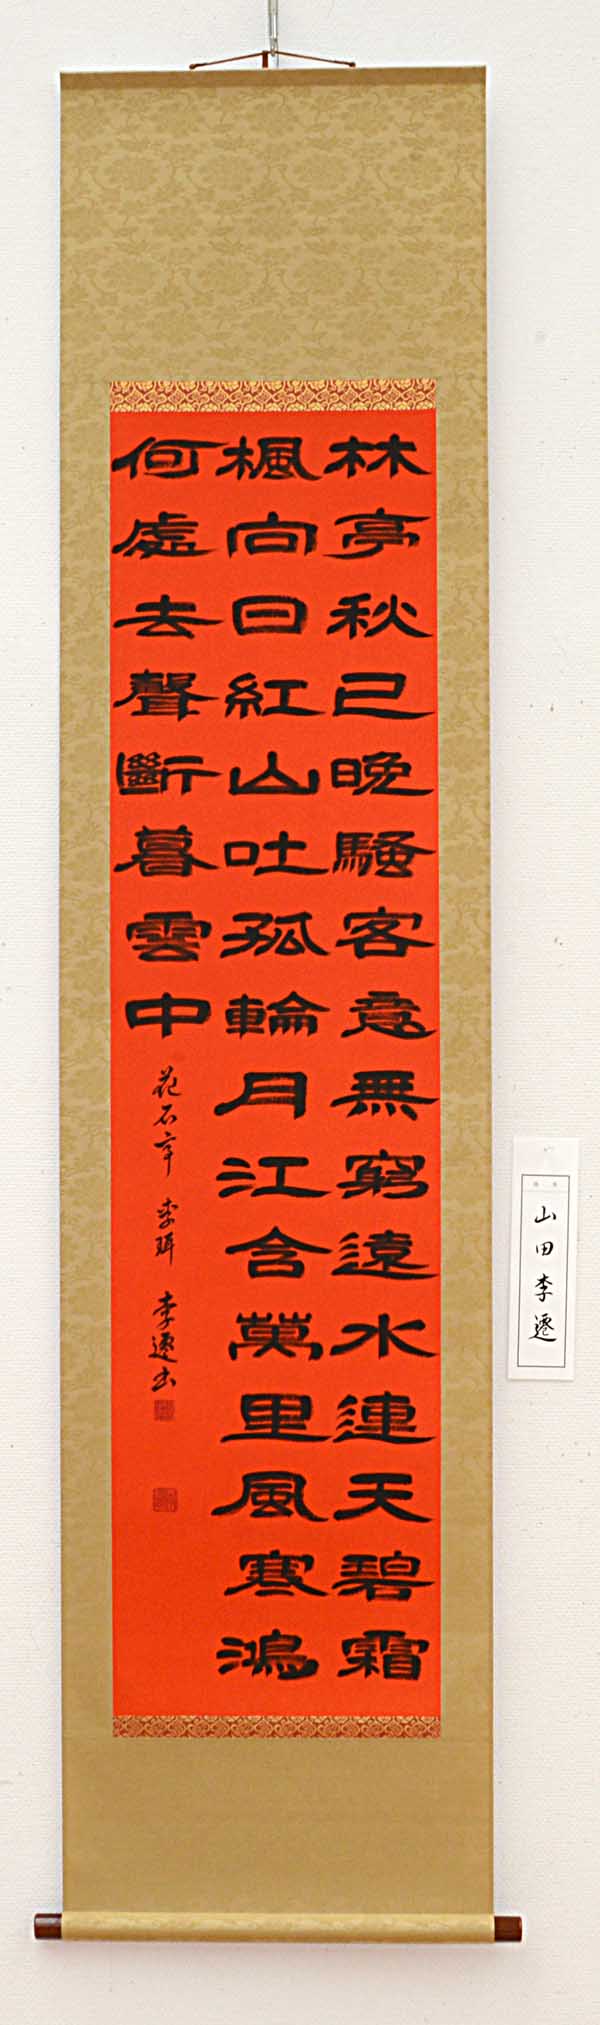 林亭秋已晩騷客意無窮遠水連天碧霜
楓向日紅山吐孤輪月江含萬里風寒鴻
何處去聲斷暮雲中
花石亭 李珥 李遷书
山田李遷